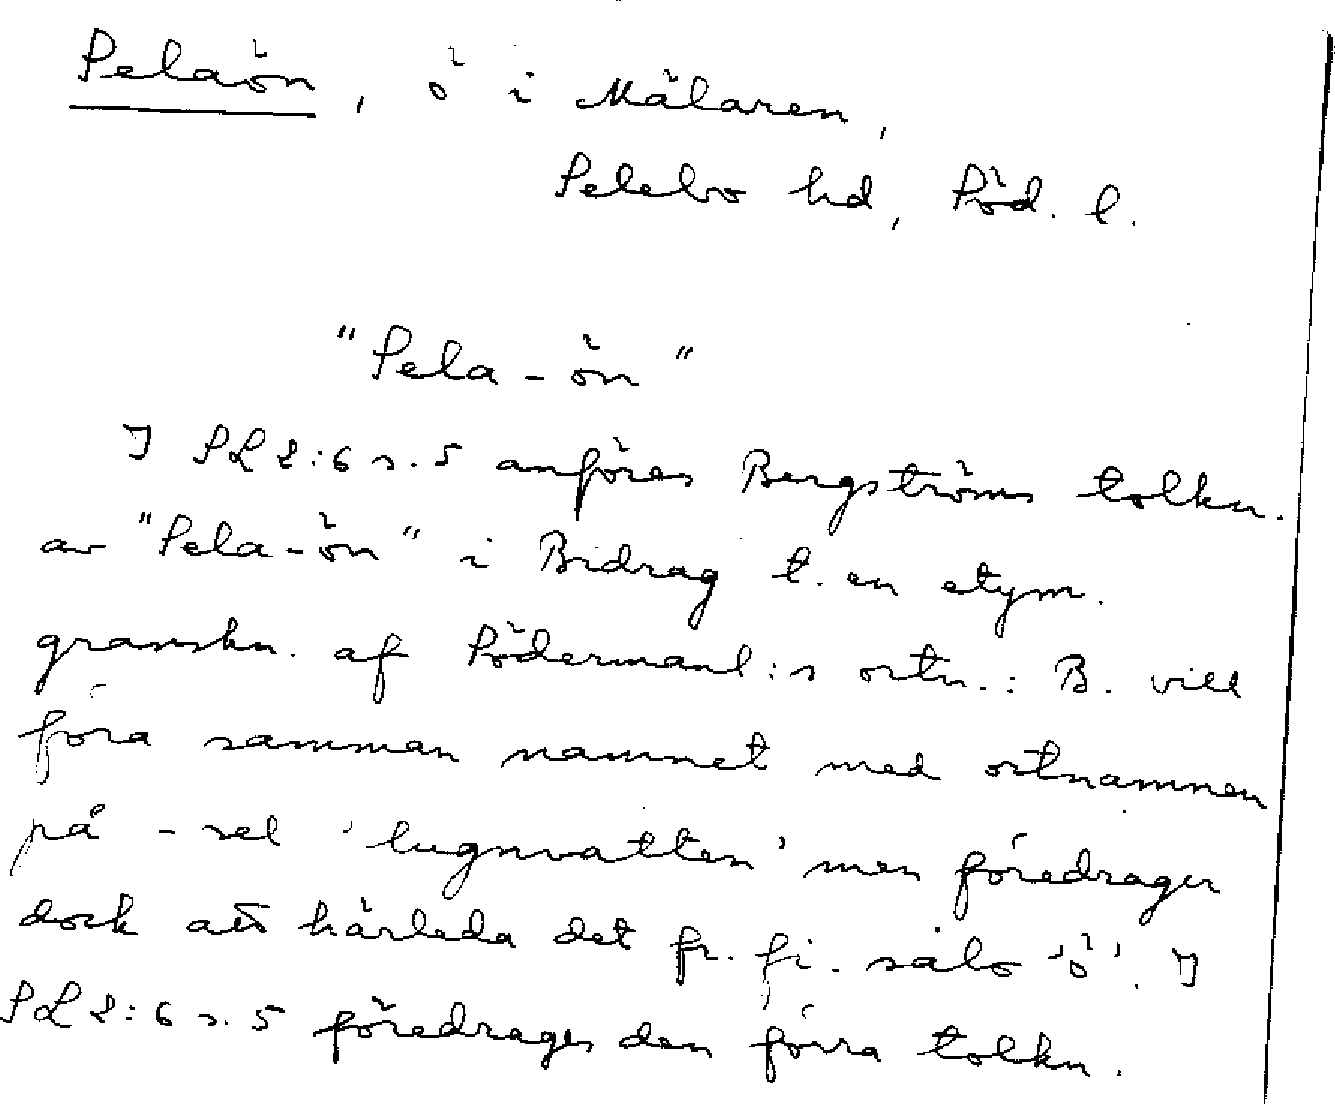 Selaön, ö i Mälaren,
Selebo hd, Söd. l.
"Sela-ön"
I SL 2:6 s. 5 anföres Bergströms tolkn.
av "Sela-ön" i Bidrag t. en etym.
granskn. af Södermanl:s ortn.: B. vill
föra samman namnet med ortnamnen
på -sel 'lugnvatten' men föredrager
dock att härleda det fr. fi. salo 'ö'. I
SL 2:6 s. 5 föredrages den förra tolkn.